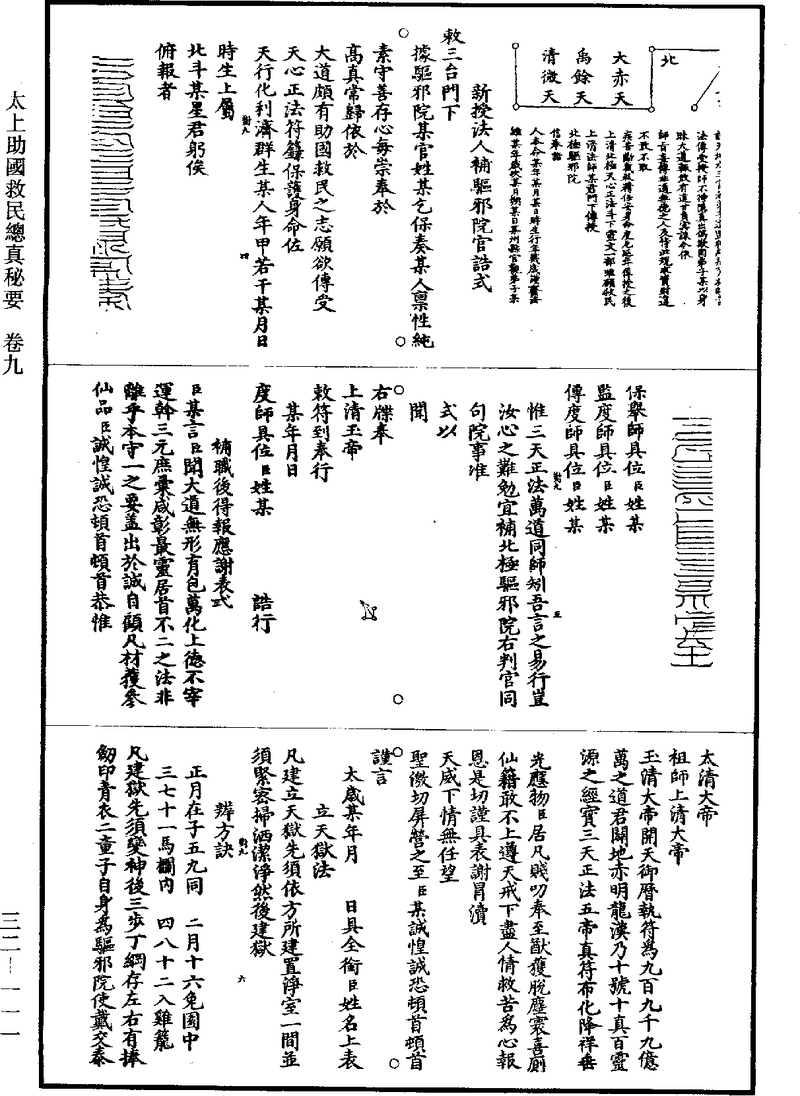 太上助國救民總真秘要　卷九
三二－一一一
北
大赤天
禹餘天
清微天
不敢不敢
上清北極天心正法斗下靈文一部
北極驅邪院
信奉誥
新授法人補驅邪院官誥式
敕三台門下
據驅邪院某官姓某乞保奏某人禀性純
素守善存心每崇奉於
高真常歸依於
大道頗有助國救民之志願欲傳受
天心正法符籙保護身命佐
天行化利濟群生某人年甲若干某月日
時生上屬
北斗某星君躬俟
俯報者
保舉師具位臣姓某
監度師具位臣姓某
傳度師具位臣姓某
惟三天正法萬道同師矧吾言之易行豈
汝心之難勉宜補北極驅邪院右判官同
句院事准
式以
聞
右牒奉
上清玉帝
敕符到奉行
某年月日
度師具位臣姓某　誥行
補職後得報應謝表式
臣某言臣聞大道無形有包萬化上德不宰
運幹三元庶彙咸彰最靈居首不二之法非
離乎本守一之要蓋出於誠自顧凡材獲參
仙品臣誠惶誠恐頓首頓首恭惟
太清大帝
祖師上清大帝
玉清大帝開天御曆執符為九百九千九億
萬之道君闢地赤明龍漢乃十號十真百靈
源之經寶三天正法五帝真符布化降祥垂
光應物臣居凡賤叨奉至猷獲脫塵寰喜廁
仙籍敢不上遵天戒下盡人情救苦為心報
恩是切謹具表謝冒瀆
天威下情無任望
聖激切屏營之至臣某誠惶誠恐頓首頓首
謹言
太歲某年月　日具全銜臣姓名上表
立天獄法
凡建立天獄先須依方所建置淨室一間並
須緊密掃洒潔淨然後建獄
辨方訣
正月在子五九同　二月十六兔園中
三七十一馬欄內　四八十二入雞籠
凡建獄先須變神後三步丁綱存左右有捧
劍印青衣二童子自身為驅邪院使戴交泰